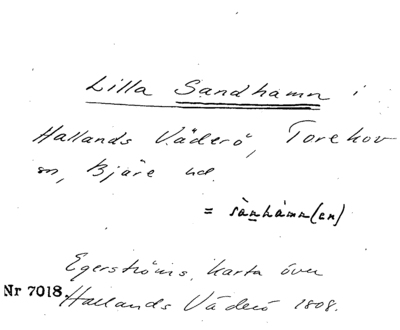 Lilla Sandhamn i
Hallands Väderö, Torekov
sn, Bjäre hd.
= sànhàmn(en)
Egerströms karta över
Nr 7018. Hallands Väderö 1808.